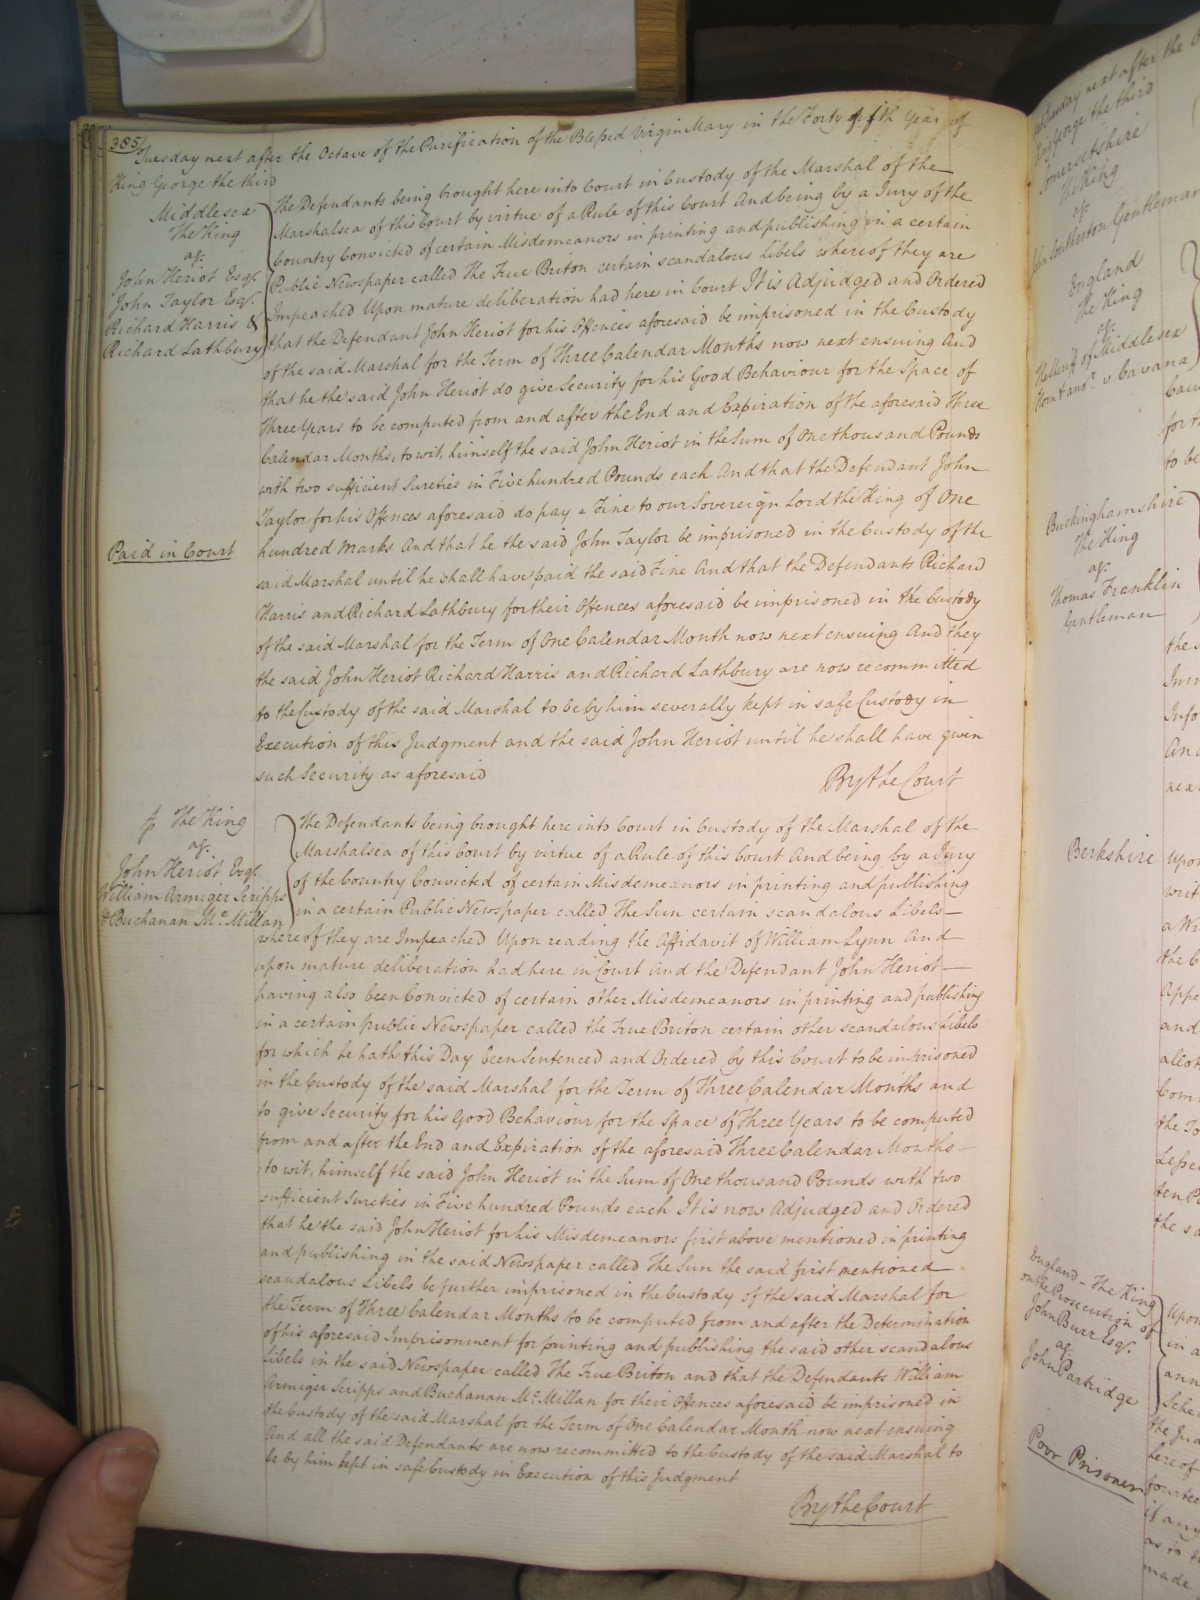 385
Tuesday next after the Octave of the Purification of the Blessed Virgin Mary in the Forty fifth Year of
King George the third
Middlesex
The King
agt.
John Heriot Esqr.
John Taylor Esqr.
Richard Harris &
Richard Lathbury
The Defendants being brought here into Court in Custody of the Marshal of the
Marshalsea of this Court by virtue of a Rule of this Court And being by a Jury of the
Country Convicted of certain Misdemeanors in printing and publishing in a certain
Public Newspaper called The True Briton certain scandalous Libels whereof they are
Impeached Upon mature deliberation had here in Court It is Adjudged and Ordered
that the Defendant John Heriot for his Offences aforesaid be imprisoned in the Custody
of the said Marshal for the Term of Three Calendar Months now next ensuing And
that he the said John Heriot do give Security for his Good Behaviour for the Space of
Three Years to be computed from and after the End and Expiration of the aforesaid Three
Calendar Months, to wit, himself the said John Heriot in the Sum of One thousand Pounds
with two sufficient Sureties in Five hundred Pounds each And that the Defendant John
Taylor for his Offences aforesaid do pay a Fine to our Sovereign Lord the King of One
Paid in Court
hundred Marks And that he the said John Taylor be imprisoned in the Custody of the
said Marshal until he shall have paid the said Fine And that the Defendants Richard
Harris and Richard Lathbury for their Offences aforesaid be imprisoned in the Custody
of the said Marshal for the Term of One Calendar Month now next ensuing And they
the said John Heriot Richard Harris and Richard Lathbury are now recommitted
to the Custody of the said Marshal to be by him severally kept in safe Custody in
Execution of this Judgment and the said John Heriot until he shall have given
such Security as aforesaid
By the Court
The King
agt.
John Heriot Esqr.
William Armiger Scripps
& Buchanan Mc. Millan
The Defendants being brought here into Court in Custody of the Marshal of the
Marshalsea of this Court by virtue of a Rule of this Court And being by a Jury
of the Country Convicted of certain Misdemeanors in printing and publishing
in a certain Public Newspaper called The Sun certain scandalous Libels
whereof they are Impeached Upon reading the Affidavit of William Lynn And
upon mature deliberation had here in Court And the Defendant John Heriot
having also been Convicted of certain other Misdemeanors in printing and publishing
in a certain public Newspaper called the True Briton certain other scandalous Libels
for which he hath this Day been Sentenced and Ordered by this Court to be imprisoned
in the Custody of the said Marshal for the Term of Three Calendar Months and
to give Security for his Good Behaviour for the Space of Three Years to be computed
from and after the End and Expiration of the aforesaid Three Calendar Months
to wit, himself the said John Heriot in the Sum of One thousand Pounds with two
sufficient Sureties in Five hundred Pounds each It is now Adjudged and Ordered
that he the said John Heriot for his Misdemeanors first above mentioned in printing
and publishing in the said Newspaper called The Sun the said first mentioned
scandalous Libels be further imprisoned in the Custody of the said Marshal for
the Term of Three Calendar Months to be computed from and after the Determination
of his aforesaid Imprisonment for printing and publishing the said other scandalous
Libels in the said Newspaper called The True Briton and that the Defendants William
Armiger Scripps and Buchanan Mc. Millan for their Offences aforesaid be imprisoned in
the Custody of the said Marshal for the Term of One Calendar Month now next ensuing
And all the said Defendants are now recommitted to the Custody of the said Marshal to
be by him kept in safe Custody in Execution of this Judgment
By the Court
Tuesday next after the
King George the third
Somersetshire
The King
agt.
John Lotherton Gentleman
England
The King
agt.
The Sheriff of Middlesex
Horn & anor. v Cavana
for
to be
Buckinghamshire
The King
agt.
Thomas Franklin
Gentleman
the
Info
And
Berkshire
Upon
writ
a Wr
the C
Appe
and
allot
Com
the To
Lesse
ten P
the sa
England – The King
on the Prosecution of
John Burr Esqr.
agt.
John Partridge
Upon
in a
ann
Sche
the Jud
here of
fourte
if any
as to
made
Poor Prisoner